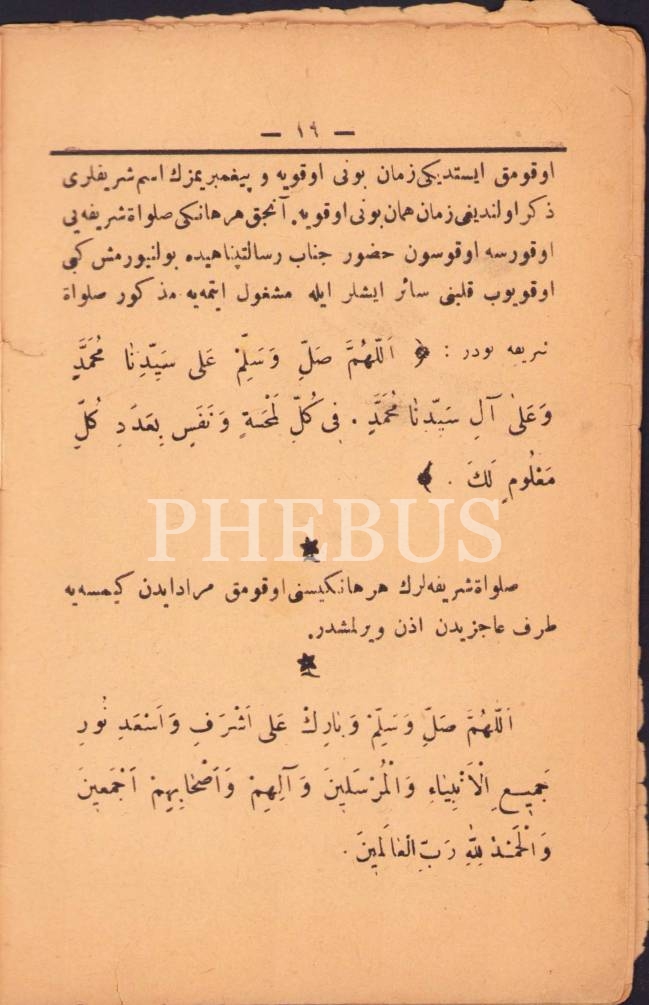 — ١٩ —
اوقومق ايستديكى زمان بونى اوقويه و پيغمبريمزك اسم شريفلرى
ذكر اولنديغى زمان همان بونى اوقويه. آنجق هر هانكى صلواة شريفه يى
اوقورسه اوقوسون حضور جناب رسالتپناهيده بولنيورمش كبى
اوقويوب قلبنى سائر ايشلر ايله مشغول ايتمه يه مذكور صلواة
شريفه بودر : ﴿ اَللّٰهُمَّ صَلِّ وَسَلِّمْ عَلى سَيِّدِنَا مُحَمَّدٍ
وَعَلىٰ آلِ سَيِّدِنَا مُحَمَّدٍ . فِى كُلِّ لَمْحَةٍ وَنَفَسٍ بِعَدَدِ كُلِّ
مَعْلُومٍ لَكَ . ﴾
PHEBUS
صلواة شريفه لرك هر هانكيسنى اوقومق مراد ايدن كيمسه يه
طرف عاجزيدن اذن ويرلمشدر.
اَللّٰهُمَّ صَلِّ وَسَلِّمْ وَبَارِكْ عَلى اَشْرَفِ وَاَسْعَدِ نُورِ
جَمِيعِ الْاَنْبِيَاءِ وَالْمُرْسَلِينَ وَآلِهِمْ وَاَصْحَابِهِمْ اَجْمَعِينَ
وَالْحَمْدُ لِلّٰهِ رَبِّ الْعَالَمِينَ .